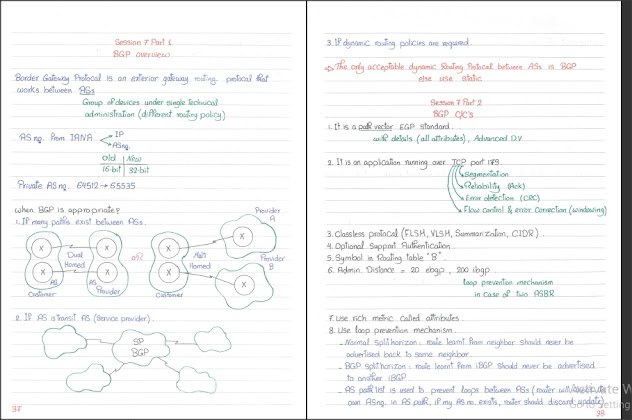 Session 7 Part 1
BGP overview
Border Gateway Protocol is an exterior gateway routing protocol that
works between ASs
Group of devices under single technical
administration (different routing policy)
AS ng. from IANA
IP
ASng.
old New
16-bit 32-bit
Private ASng. 64512 → 65535
when BGP is appropriate?
1. If many paths exist between ASs.
Provider
A
X X X X
Dual
Homed
OR
Multi
Homed
X X X X
Provider
B
Customer
AS
AS
Provider
Customer
2. If AS is transit AS (Service provider).
SP
BGP
37
3. If dynamic routing policies are required.
The only acceptable dynamic Routing Protocol between ASs is BGP
else use static
Session 7 Part 2
BGP C/C's
1. It is a path vector EGP standard.
with details (all attributes), Advanced D.V
2. It is an application running over TCP port 179.
Segmentation
Reliability (Ack)
Error detection (CRC)
Flow control & error correction (windowing)
3. Classless protocol (FLSM, VLSM, Summarization, CIDR).
4. Optional Support Authentication.
5. Symbol in Routing table "B"
6. Admin. Distance = 20 ebgp, 200 ibgp
loop prevention mechanism
in case of two ASBR
7. Use rich metric called attributes.
8. Use loop prevention mechanism.
- Normal split horizon: route learnt from neighbor should never be
advertised back to same neighbor.
- BGP split horizon: route learnt from iBGP should never be advertised
to another iBGP
- AS path list is used to prevent loops between ASs (router will
own ASng. in AS path, if my AS no. exists, router should discard update)
38